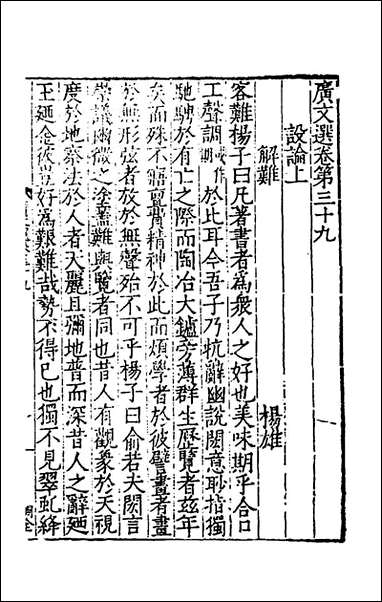 廣文選卷第三十九
設論上
解難　楊雄
客難楊子曰凡著書者為衆人之好也美味期乎合口
工聲調於比耳今吾子乃抗辭幽説閎意眇指獨
馳騁於有亡之際而陶冶大鑪旁薄群生歴覽者兹年
矣而殊不寤亶費精神於此而煩學者於彼譬畫者畫
於無形弦者放於無聲殆不可乎楊子曰俞若夫閎言
崇議幽微之塗蓋難與覽者同也昔人有觀象於天視
度於地察法於人者天麗且彌地普而深昔人之辭廼
玉廼金彼豈好為艱難哉勢不得已也獨不見翠虬絳